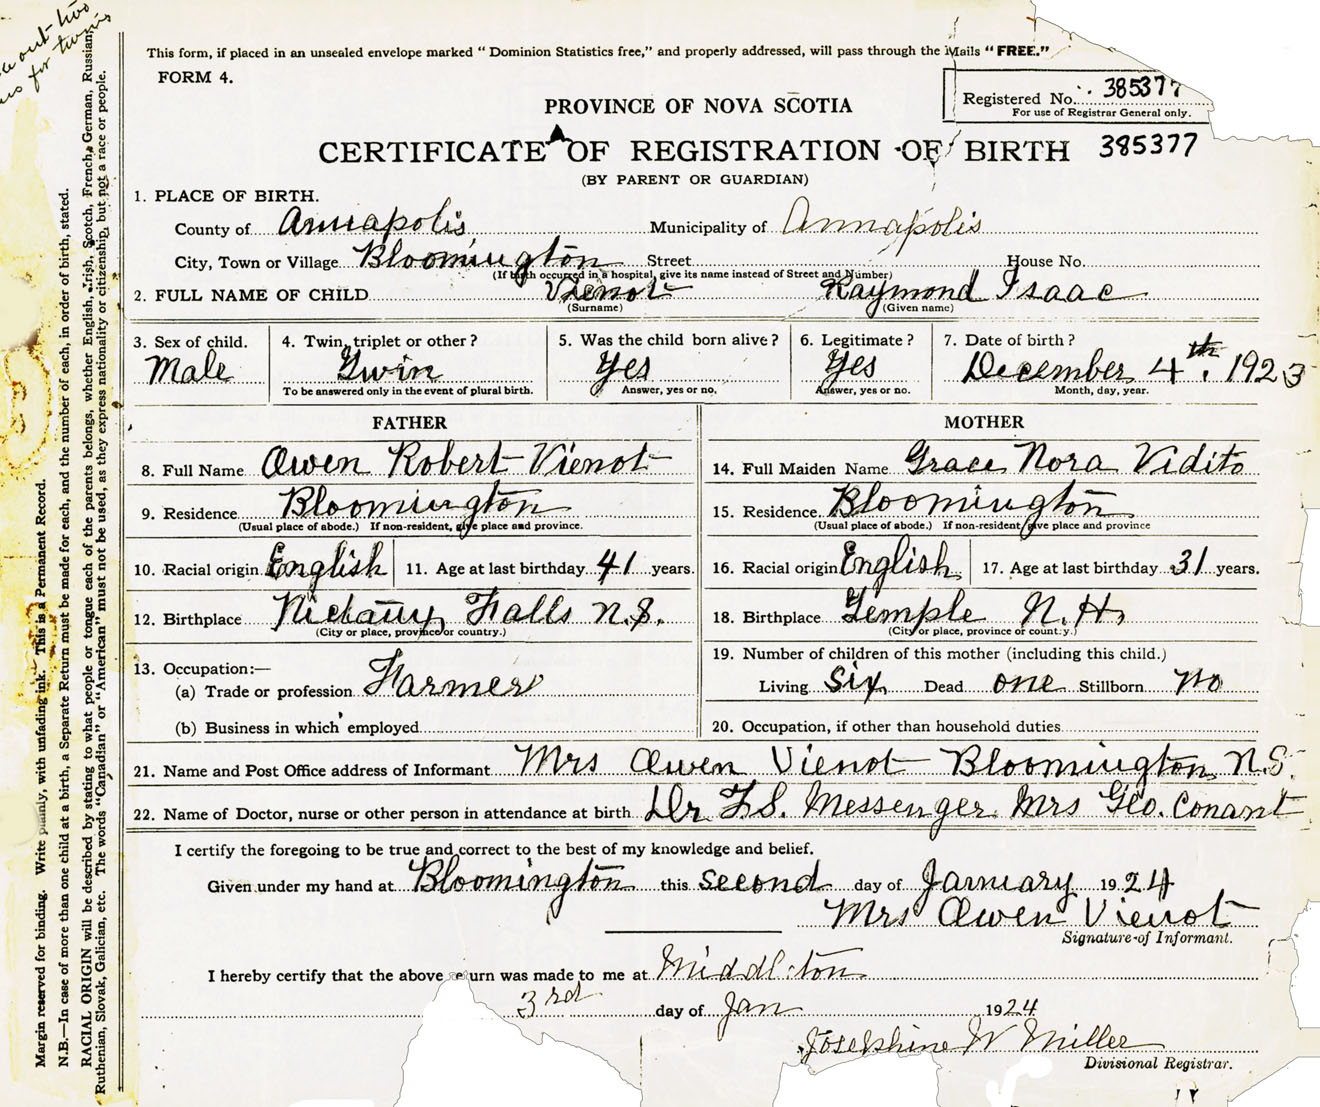 out two
for twins
This form, if placed in an unsealed envelope marked "Dominion Statistics free," and properly addressed, will pass through the Mails "FREE."
FORM 4.
Registered No. 385377
For use of Registrar General only.
PROVINCE OF NOVA SCOTIA
CERTIFICATE OF REGISTRATION OF BIRTH 385377
(BY PARENT OR GUARDIAN)
1. PLACE OF BIRTH.
County of Annapolis Municipality of Annapolis
City, Town or Village Bloomington Street House No.
(If birth occurred in a hospital, give its name instead of Street and Number)
2. FULL NAME OF CHILD Vienot Raymond Isaac
(Surname) (Given name)
3. Sex of child. 4. Twin, triplet or other? 5. Was the child born alive? 6. Legitimate? 7. Date of birth?
Male Twin Yes Yes December 4th. 1923
To be answered only in the event of plural birth. Answer, yes or no. Answer, yes or no. Month, day, year.
FATHER MOTHER
8. Full Name Owen Robert Vienot 14. Full Maiden Name Grace Nora Vidito
9. Residence Bloomington 15. Residence Bloomington
(Usual place of abode.) If non-resident, give place and province. (Usual place of abode.) If non-resident, give place and province
10. Racial origin English 11. Age at last birthday 41 years. 16. Racial origin English 17. Age at last birthday 31 years.
12. Birthplace Nictaux Falls N.S. 18. Birthplace Temple N.H.
(City or place, province or country.) (City or place, province or country.)
13. Occupation:— 19. Number of children of this mother (including this child.)
(a) Trade or profession Farmer Living six Dead one Stillborn No
(b) Business in which employed 20. Occupation, if other than household duties
21. Name and Post Office address of Informant Mrs Owen Vienot Bloomington N.S.
22. Name of Doctor, nurse or other person in attendance at birth Dr F.S. Messenger Mrs Geo. Conant
I certify the foregoing to be true and correct to the best of my knowledge and belief.
Given under my hand at Bloomington this second day of January 1924
Mrs Owen Vienot
Signature of Informant.
I hereby certify that the above return was made to me at Middleton
3rd day of Jan 1924
Josephine W Miller
Divisional Registrar.
Margin reserved for binding. Write plainly, with unfading ink. This is a Permanent Record.
N.B.—In case of more than one child at a birth, a Separate Return must be made for each, and the number of each, in order of birth, stated.
RACIAL ORIGIN will be described by stating to what people or tongue each of the parents belongs, whether English, Irish, Scotch, French, German, Russian,
Ruthenian, Slovak, Galician, etc. The words "Canadian" or "American" must not be used, as they express nationality or citizenship, but not a race or people.